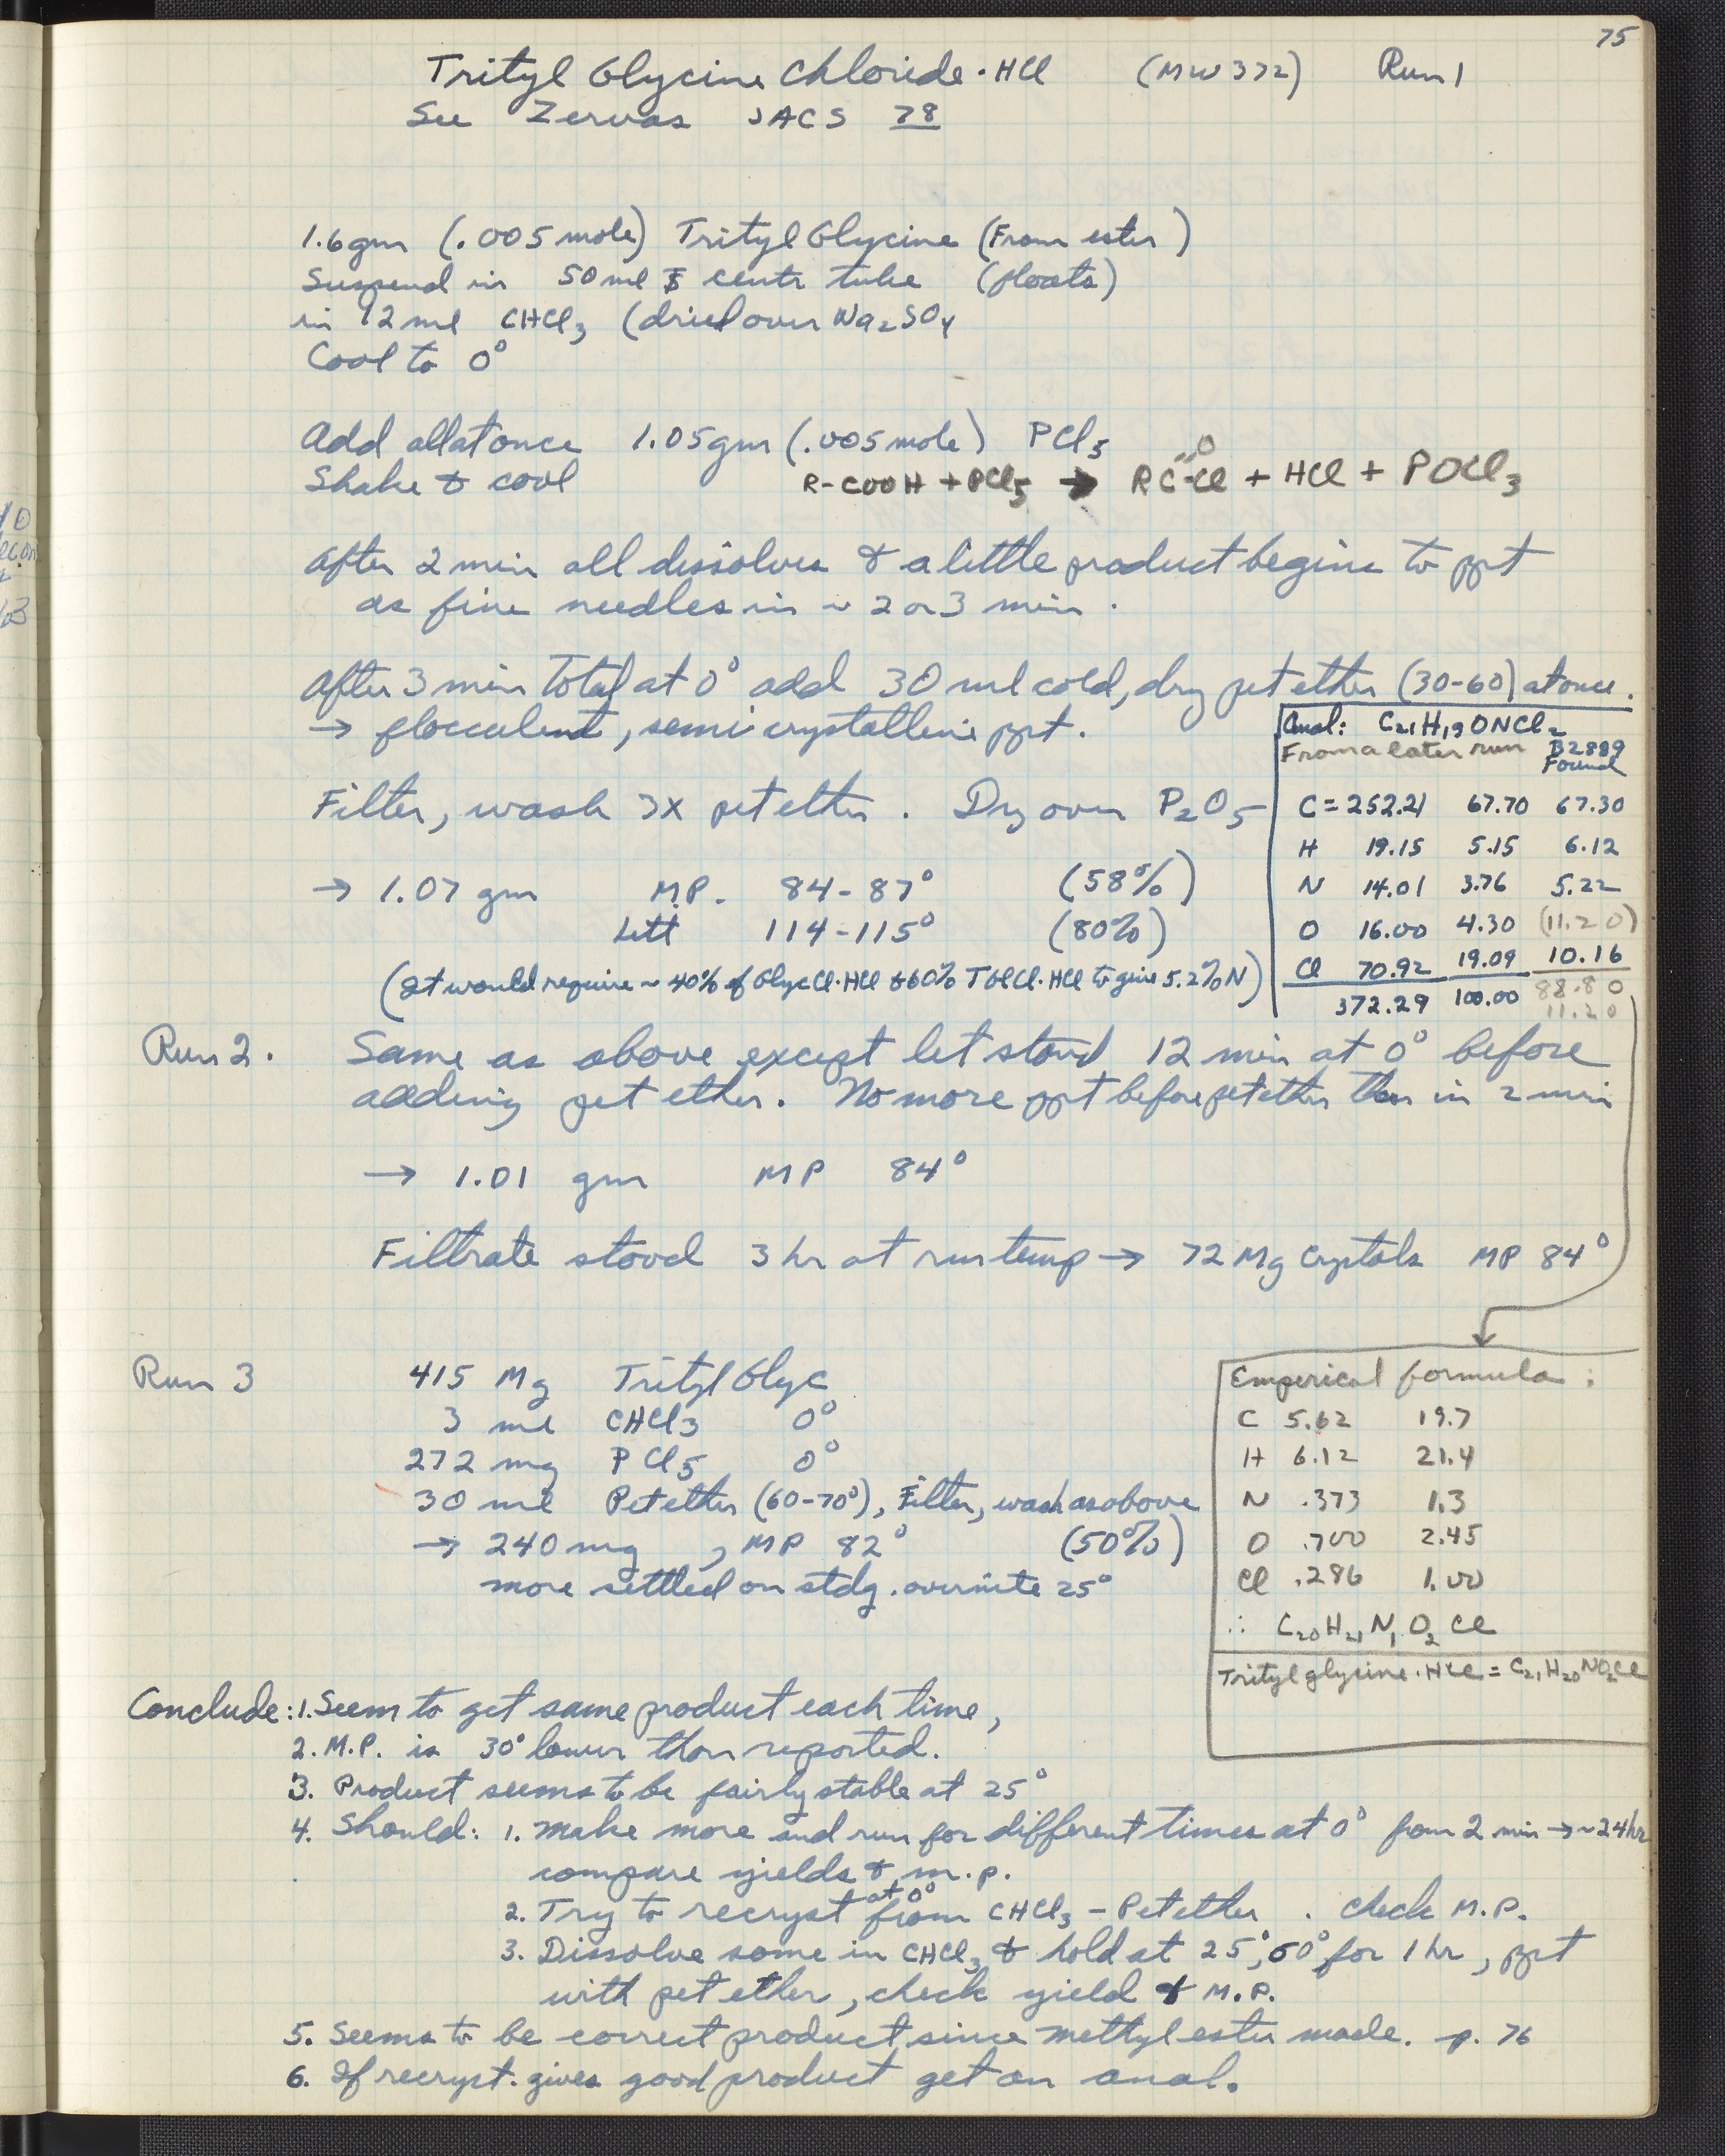 75
Trityl Glycine Chloride·HCl (MW 372) Run 1
See Zervas JACS 78
1.6 gm (.005 mole) Trityl Glycine (From ester)
Suspend in 50 ml centr tube (floats)
in 12 ml CHCl3 (dried over Na2SO4
Cool to 0°
Add all at once 1.05 gm (.005 mole) PCl5
Shake & cool
R-COOH + PCl5 → RC-Cl + HCl + POCl3
O
After 2 min all dissolves & a little product begins to ppt
as fine needles in ~ 2 or 3 min.
After 3 min Total at 0° add 30 ml cold, dry pet ether (30-60) at once.
→ flocculent, semi crystalline ppt.
Filter, wash 3X pet ether. Dry over P2O5
→ 1.07 gm M.P. 84-87° (58%)
Litt 114-115° (80%)
(It would require ~ 40% of GlycCl·HCl & 60% TGlCl·HCl to give 5.2% N)
Anal: C21H19ONCl2
From a later run B2889
Found
C = 252.21 67.70 67.30
H 19.15 5.15 6.12
N 14.01 3.76 5.22
O 16.00 4.30 (11.20)
Cl 70.92 19.09 10.16
372.29 100.00 88.80
11.20
Run 2. Same as above except let stand 12 min at 0° before
adding pet ether. No more ppt before pet ether than in 2 min
→ 1.01 gm MP 84°
Filtrate stood 3 hr at rm temp → 72 Mg Crystals MP 84°
Run 3 415 Mg Trityl Glyc
3 ml CHCl3 0°
272 mg PCl5 0°
30 ml Pet ether (60-70°), Filter, wash as above
→ 240 mg, MP 82° (50%)
more settled on stdg. overnite 25°
Emperical formula:
C 5.62 19.7
H 6.12 21.4
N .373 1.3
O .700 2.45
Cl .286 1.00
∴ C20H21N1O2Cl
Trityl glycine·HCl = C21H20NO2Cl
Conclude: 1. Seem to get same product each time,
2. M.P. is 30° lower than reported.
3. Product seems to be fairly stable at 25°
4. Should: 1. Make more and run for different times at 0° from 2 min → ~24 hr
compare yields & m.p.
2. Try to recryst at 0° from CHCl3 - Pet ether. Check M.P.
3. Dissolve some in CHCl3 & hold at 25°, 60° for 1 hr, ppt
with pet ether, check yield & M.P.
5. Seems to be correct product since methyl ester made. p. 76
6. If recryst. gives good product get an anal.